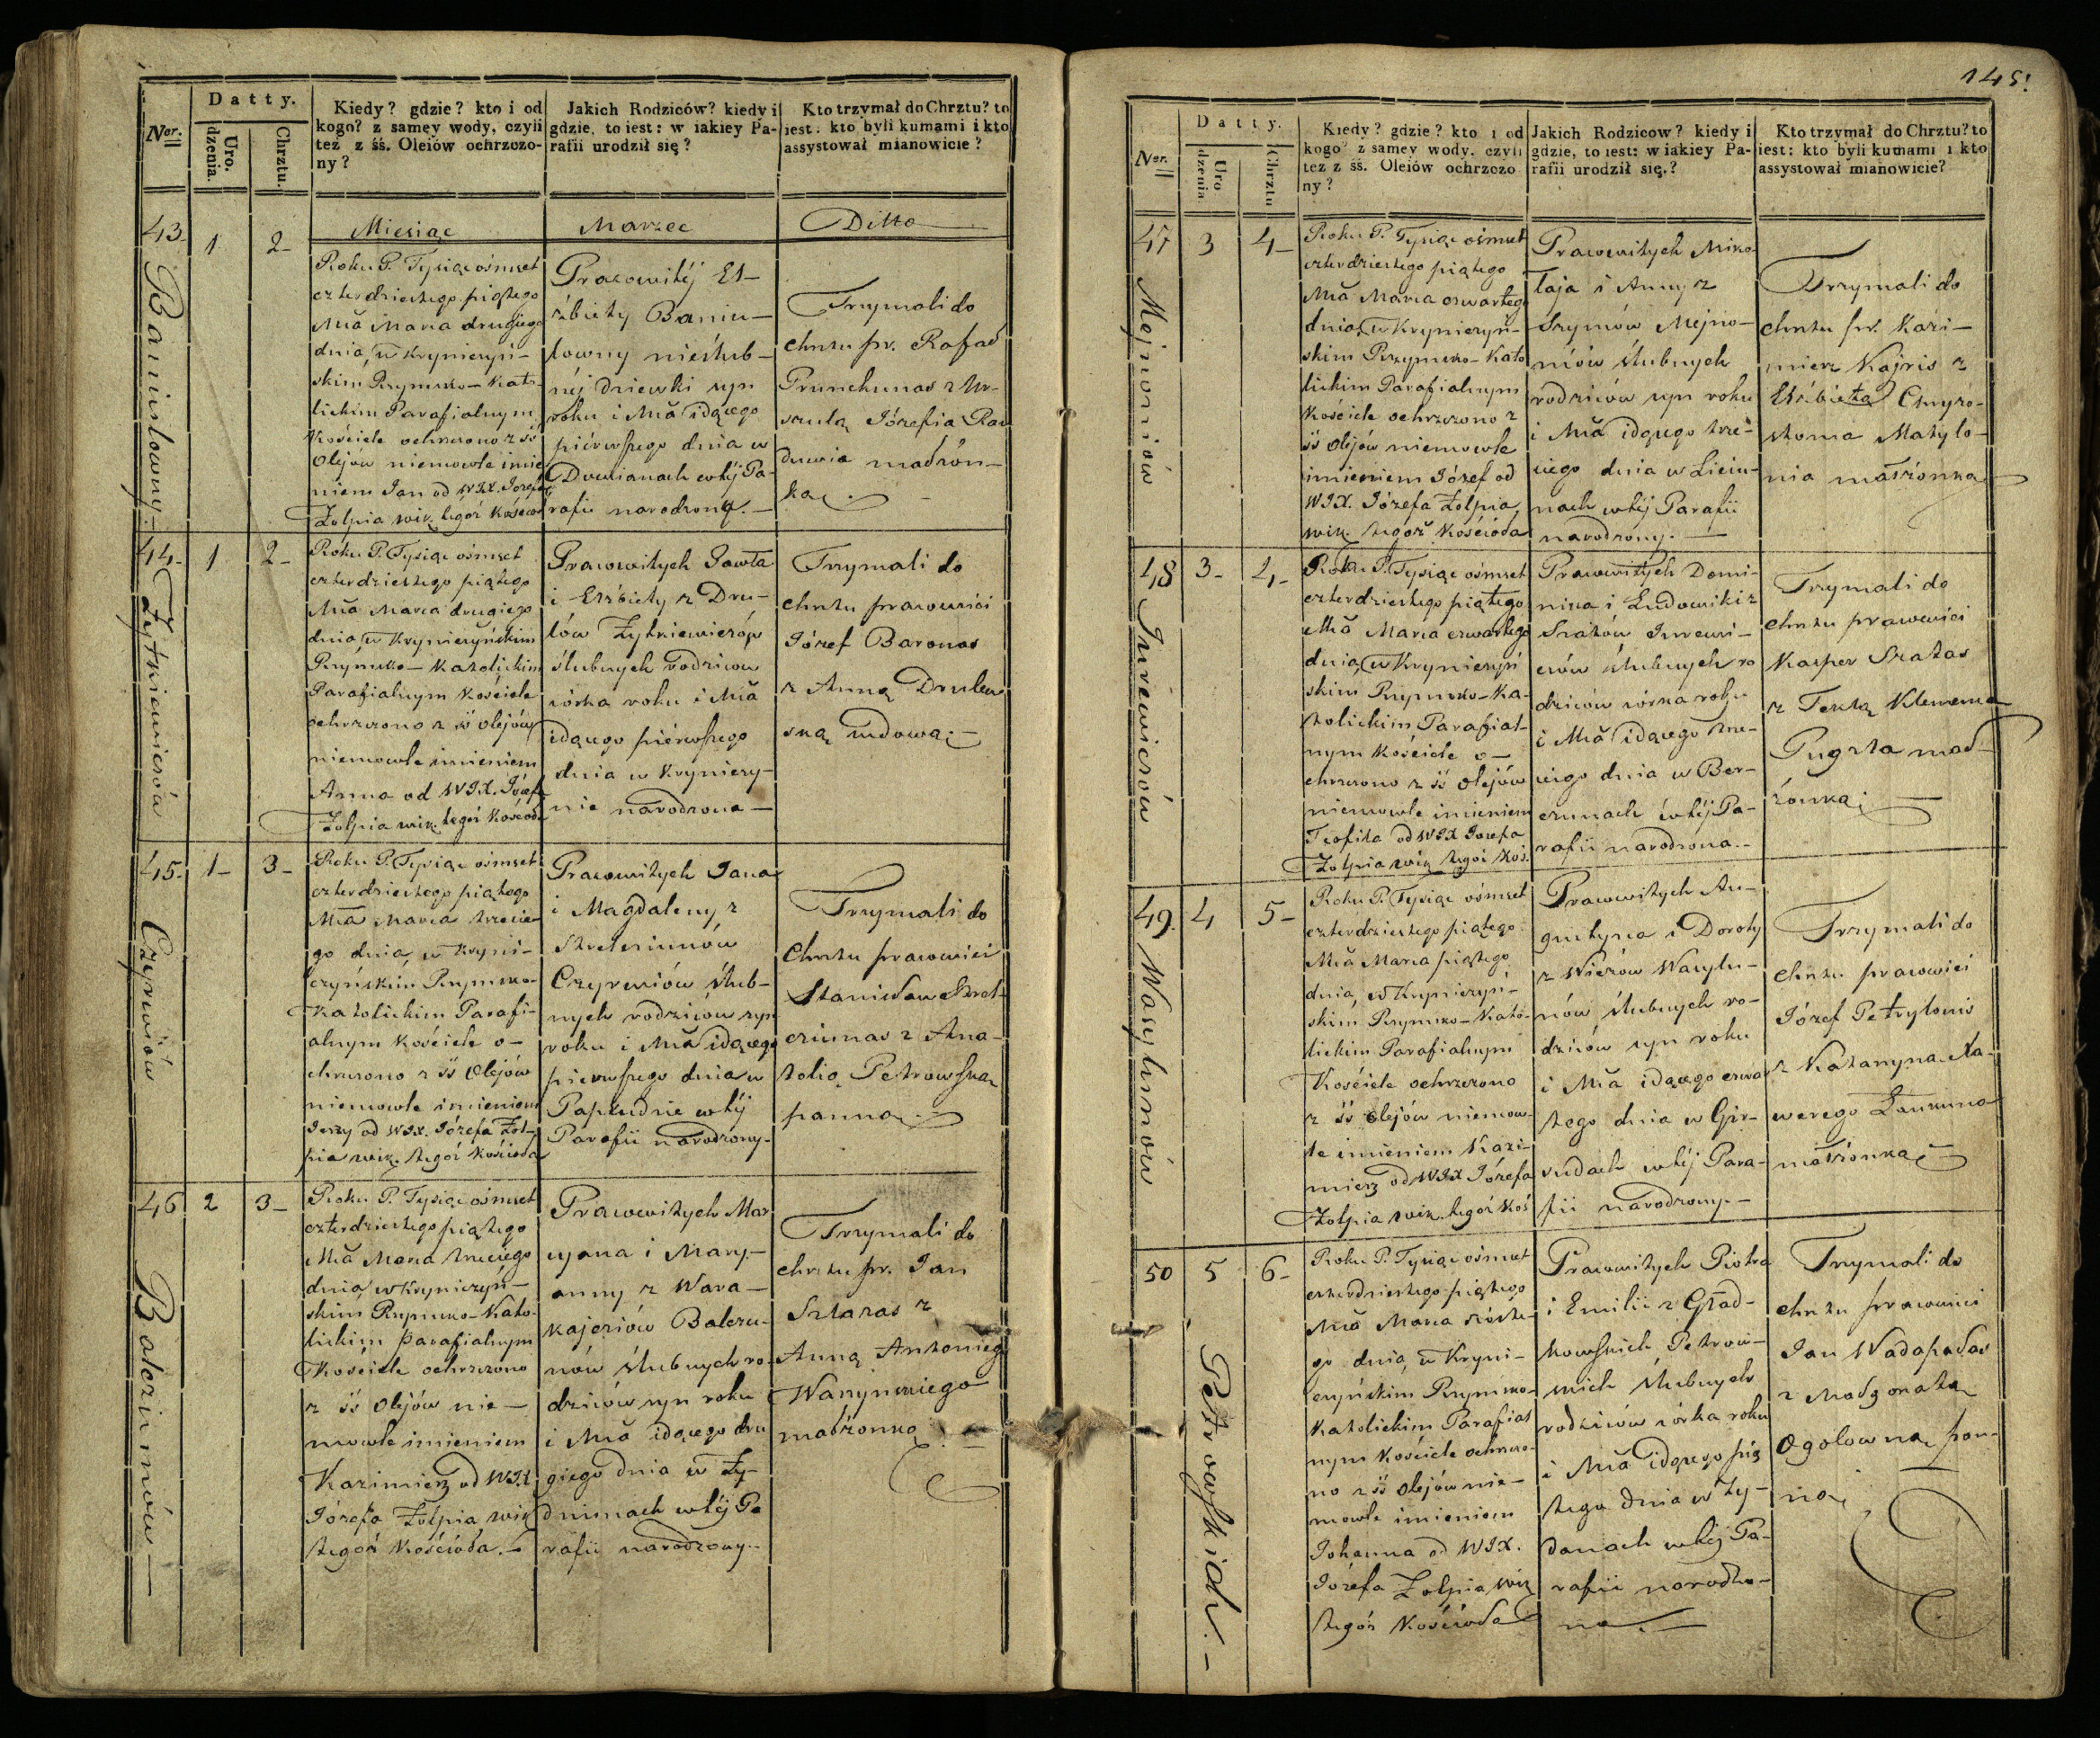 Datty.
Ner.
Uro-
dzenia.
Chrztu.
Kiedy? gdzie? kto i od
kogo? z samey wody, czyli
też z śś. Oleiów ochrzczo-
ny?
Jakich Rodziców? kiedy i
gdzie, to iest: w iakiey Pa-
rafii urodził się?
Kto trzymał do Chrztu? to
iest: kto byli kumami i kto
assystował mianowicie?
Miesiąc
Marzec
Ditto
43.
Baniulowny
1
2
Roku P. Tysiąc ośmset
czterdziestego piątego
Mca Marca drugiego
dnia, w Kryniczyń-
skim Rzymsko-Kato-
lickim Parafialnym
Kościele ochrzczono z śś
Olejów niemowle imie-
niem Jan od WJX. Józefa
Żołpia wik. tegóż Kościoła
Pracowitéj El-
żbiety Baniu-
lowny nieślub-
néj dziewki syn
roku i Mca idącego
piérwszego dnia w
w téj Pa-
rafii narodzony.
Trzymali do
chrztu pr. Rafał
Prunckunas z Ur-
szulą Józefia
małżon-
ka
44.
Żytkiewiczów
1
2
Roku P. Tysiąc ośmset
czterdziestego piątego
Mca Marca drugiego
dnia, w Kryniczyńskim
Rzymsko-Katolickim
Parafialnym Kościele
ochrzczono z śś olejów
niemowle imieniem
Anna od WJX. Józefa
Żołpia wik. tegóż Kościoła
Pracowitych Pawła
i Elżbiety z Dru-
lów Żytkiewiczów
ślubnych rodziców
córka roku i Mca
idącego piérwszego
dnia w Kryniczy-
nie narodzona
Trzymali do
chrztu pracowici
Józef Baronas
z Anną Drulew
ską wdową
45.
Czyrwiów
1
3
Roku P. Tysiąc ośmset
czterdziestego piątego
Mca Marca trzecie-
go dnia, w Kryni-
czyńskim Rzymsko-
Katolickim Parafi-
alnym Kościele o-
chrzczono z śś Olejów
niemowle imieniem
Jerzy od WJX. Józefa Żoł-
pia wik. tegóż Kościoła
Pracowitych Jana
i Magdaleny z
Czyrwiów ślub-
nych rodziców syn
roku i Mca idącego
pierwszego dnia w
Papludzie w téj
Parafii narodzony.
Trzymali do
chrztu pracowici
Stanisław
z Ana-
tolią Petrowską
panną
46
Balczunów
2
3
Roku P. Tysiąc ośmset
czterdziestego piątego
Mca Marca trzeciego
dnia, w Kryniczyń-
skim Rzymsko-Kato-
lickim Parafialnym
Kościele ochrzczono
z śś Olejów nie-
mowle imieniem
Kazimierz od WJX
Józefa Żołpia wik
tegóż Kościoła.
Pracowitych Mar
cyana i Mary-
anny z Wara-
kajciów Balczu-
nów ślubnych ro-
dziców syn roku
i Mca idącego dru
giego dnia w Ży-
dziunach w téj Pa
rafii narodzony.
Trzymali do
chrztu pr. Jan
Sztaras z
Anną Antoniego
małżonką
145.
Datty.
Ner.
Uro
dzenia.
Chrztu
Kiedy? gdzie? kto i od
kogo? z samey wody, czyli
też z śś. Oleiów ochrzczo
ny?
Jakich Rodziców? kiedy i
gdzie, to iest: w iakiey Pa-
rafii urodził się?
Kto trzymał do Chrztu? to
iest: kto byli kumami i kto
assystował mianowicie?
47
Mejnoniów
3
4
Roku P. Tysiąc ośmset
czterdziestego piątego
Mca Marca czwartego
dnia, w Kryniczyń-
skim Rzymsko-Kato
lickim Parafialnym
Kościele ochrzczono z
śś Olejów niemowle
imieniem Józef od
WJX. Józefa Żołpia,
wik. tegóż Kościoła
Pracowitych Miko-
łaja i Anny z
Szymów Mejno-
niów ślubnych
rodziców syn roku
i Mca idącego trze-
ciego dnia w Liciu-
nach w téj Parafii
narodzony.
Trzymali do
chrztu pr. Kazi-
mierz Kajris z
Elżbietą Chryzo-
stoma Matylo-
nia małżonką
48
Jurewiczów
3
4
Roku P. Tysiąc ośmset
czterdziestego piątego
Mca Marca czwartego
dnia, w Krynicżyń
skim Rzymsko-Ka-
tolickim Parafial-
nym Kościele o-
chrzczono z śś Olejów
niemowle imieniem
Teofila od WJX Józefa
Żołpia wik tegóż Koś.
Pracowitych Domi-
nika i Ludowiki z
Szatów Jurewi-
czów ślubnych ro
dziców córka roku
i Mca idącego trze-
ciego dnia w Ber-
czunach w téj Pa-
rafii narodzona.
Trzymali do
chrztu pracowici
Kasper Szatas
z Teklą Klemensa
Pugzta mał-
żonką
49.
Wasylunów
4
5
Roku P. Tysiąc ośmset
czterdziestego piątego
Mca Marca piątego
dnia, w Krynicżyń-
skim Rzymsko-Kato-
lickim Parafialnym
Kościele ochrzczono
z śś olejów niemow-
le imieniem Kazi-
mierz od WJX Józefa
Żołpia wik. tegóż Koś
Pracowitych Au-
gustyna i Doroty
z Wiczów Wasylu-
nów ślubnych ro-
dziców syn roku
i Mca idącego czwar
tego dnia w Gir-
sudach w téj Para-
fii narodzony.
Trzymali do
chrztu pracowici
Józef Petrylonis
z Katarzyną Xa-
werego
małżonką
50
Petrowskich.
5
6
Roku P. Tysiąc ośmset
czterdziestego piątego
Mca Marca szóste-
go dnia, w Kryni-
czyńskim Rzymsko-
Katolickim Parafial
nym Kościele ochrzczo-
no z śś Olejów nie-
mowle imieniem
Johanna od WJX.
Józefa Żołpia wik
tegóż Kościoła
Pracowitych Piotra
i Emilii z Gład-
kowskich Petrow-
skich ślubnych
rodziców córka roku
i Mca idącego pią
tego dnia w Ży-
danach w téj Pa-
rafii narodzo-
na.
Trzymali do
chrztu pracowici
Jan Wadapadas
z Małgorzatą
Ogolowną pan-
ną